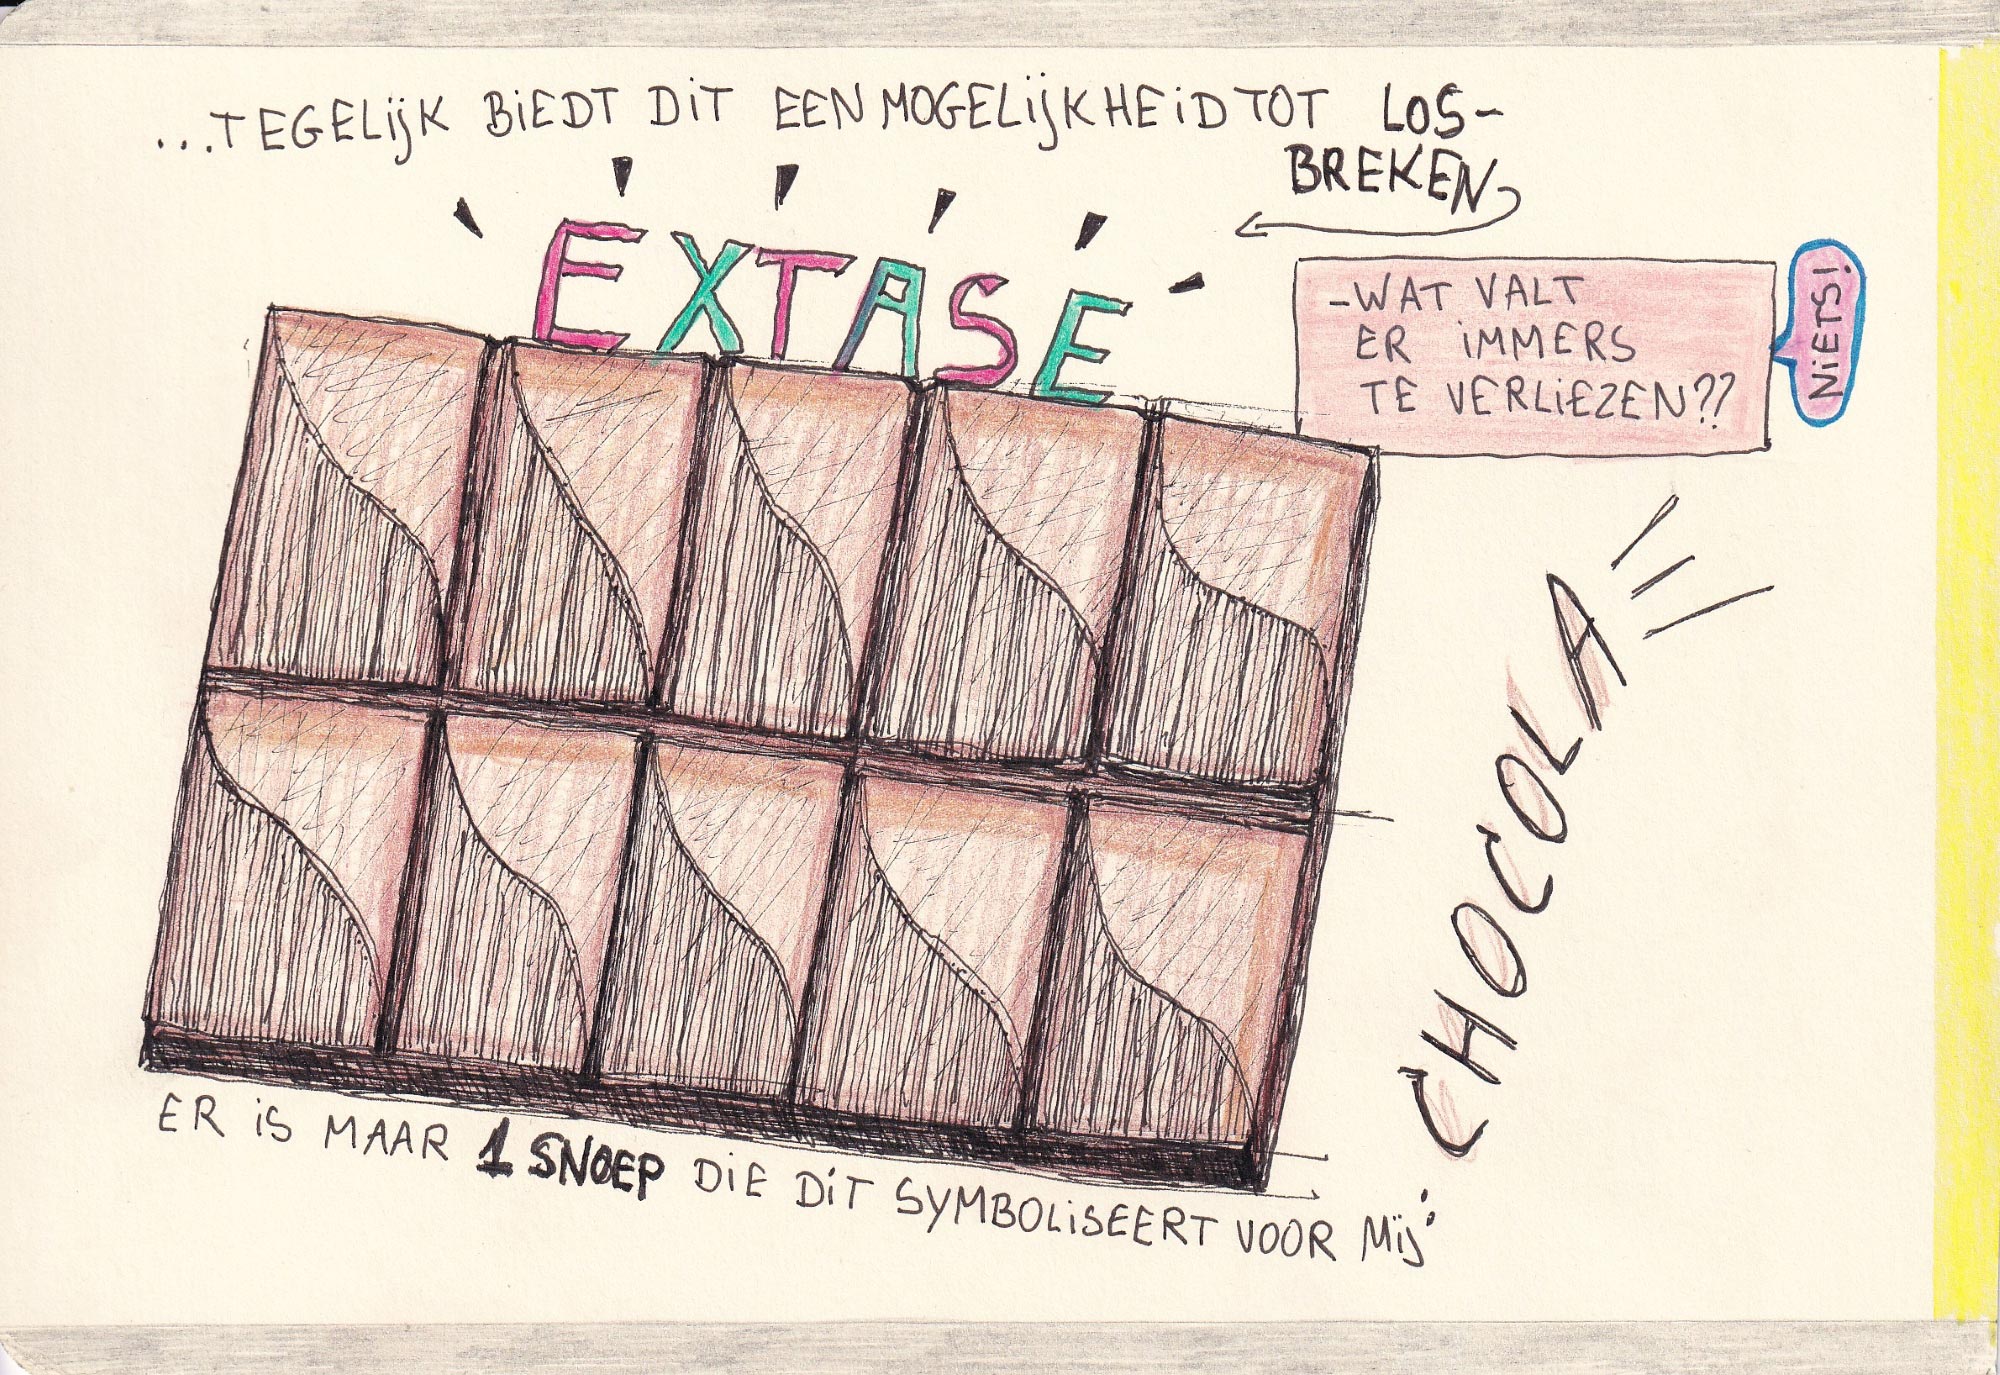 ...TEGELIJK BIEDT DIT EEN MOGELIJKHEID TOT LOS-
BREKEN
EXTASE
-WAT VALT
ER IMMERS
TE VERLIEZEN??
NIETS!
CHOCOLA
ER IS MAAR 1 SNOEP DIE DIT SYMBOLISEERT VOOR MIJ: